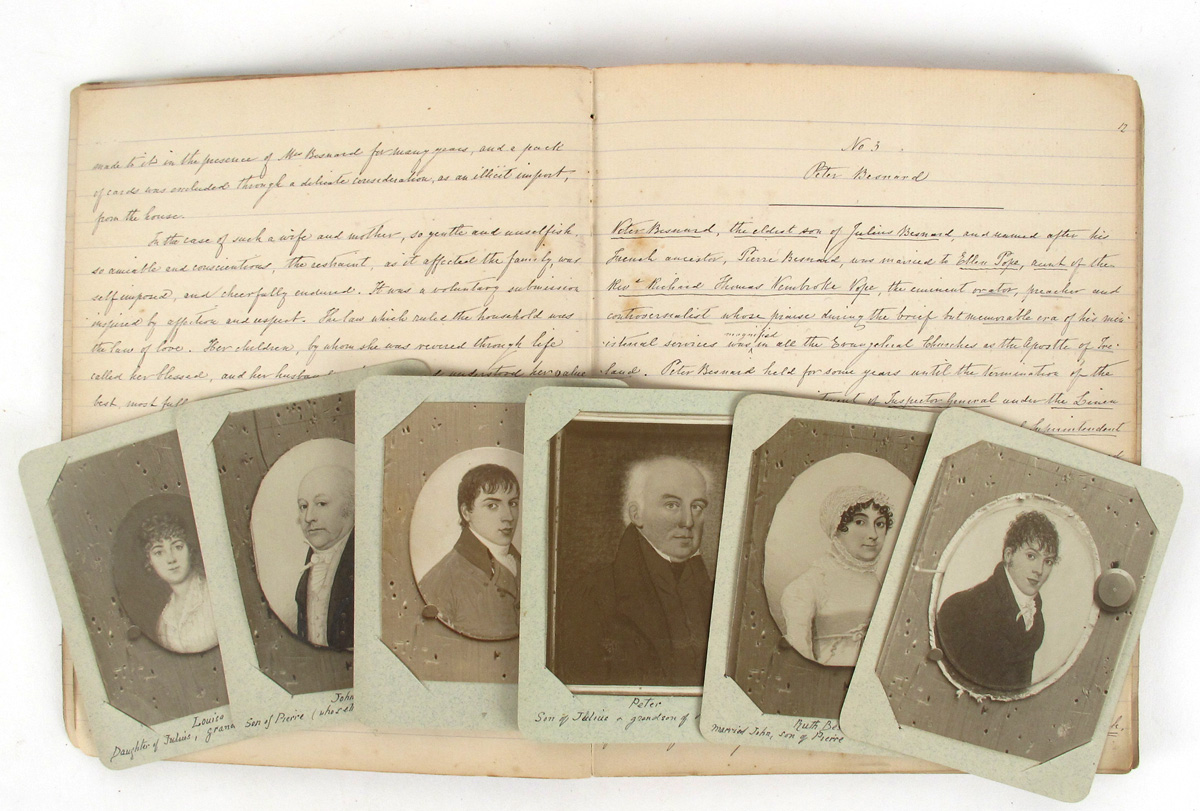 made to it in the presence of Mrs Besnard for many years, and a pack
of cards was excluded through a delicate consideration, as an illicit import,
from the house.
In the case of such a wife and mother, so gentle and unselfish,
so amiable and conscientious, the restraint, as it affected the family, was
self imposed, and cheerfully endured. It was a voluntary submission
inspired by affection and respect. The law which ruled the household was
the law of love. Her children, by whom she was revered through life
called her blessed, and her husband understood her value
best, most full
12
No 3
Peter Besnard
Peter Besnard, the eldest son of Julius Besnard, and named after his
French ancestor, Pierre Besnard, was married to Ellen Pope, aunt of the
Revd Richard Thomas Pembroke Pope, the eminent orator, preacher and
controversialist whose praise during the brief but memorable era of his min-
isterial services was magnified in all the Evangelical Churches as the Apostle of Ire-
land. Peter Besnard held for some years until the termination of the
of Inspector General under the Linen
Superintendent
Louisa
Daughter of Julius, grand
John
Son of Pierre (whose
Peter
Son of Julius & grandson of
Ruth Be
married John, son of Pierre